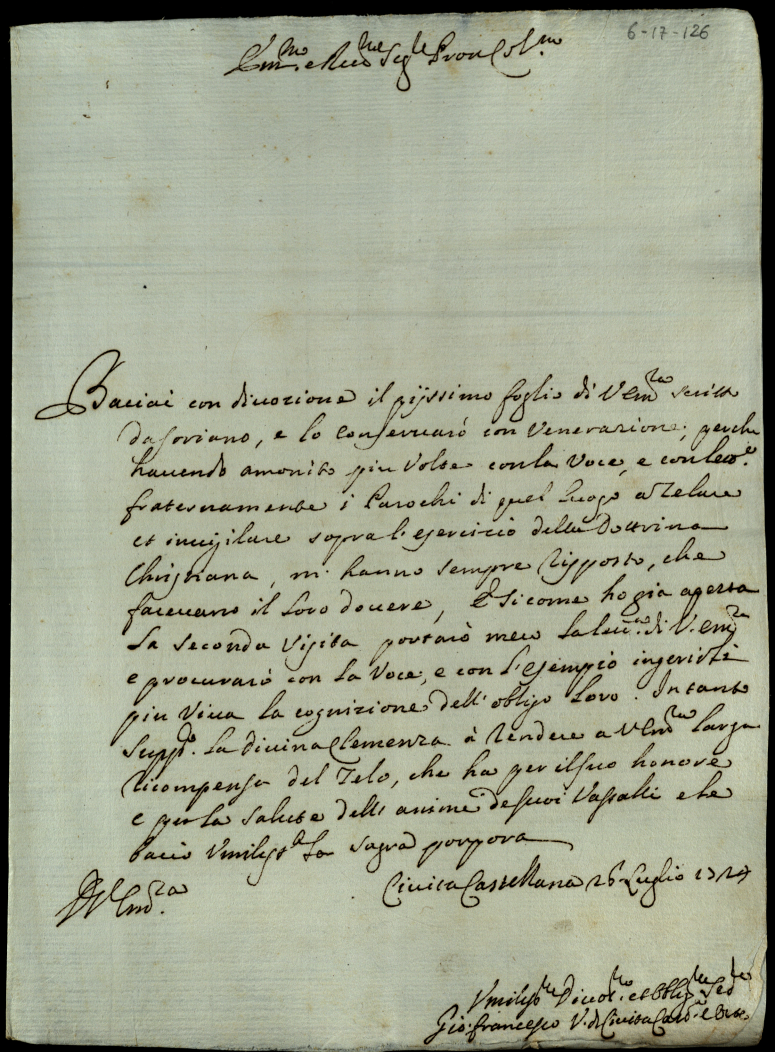 6-17-126
Em.mo e Re.mo Sig.re Pron Col.mo
Baciai con divozione il pijssimo foglio di V Em.za scritto
da Soriano, e lo conservarò con Venerazione, perche
havendo amonito piu Volte con la Voce, e con lett.e
fraternamente i Parochi di quel Luogo à Zelare
et invigilare sopra l'esercicio della Dottrina
Christiana, m'hanno sempre risposto, che
facevano il Loro dovere, E sicome ho gia aperta
La seconda Visita portarò meco La lett.a di V. Em.za
e procurarò con La Voce, e con l'esempio ingerirli
piu Viva La cognizione dell'obligo Loro. Intanto
Supp.co La Divina Clemenza à rendere a V Em.za Larga
ricompensa del Zelo, che ha per il suo honore
e per La Salute dell'anime de suoi Vassalli e le
bacio Vmiliss.te La Sagra porpora
D V Em.za
Civita Castellana 26 Luglio 17
Vmiliss.mo Divot.mo et Oblig.mo Ser.re
Gio: Francesco V. di Civita Cast.a e Orte